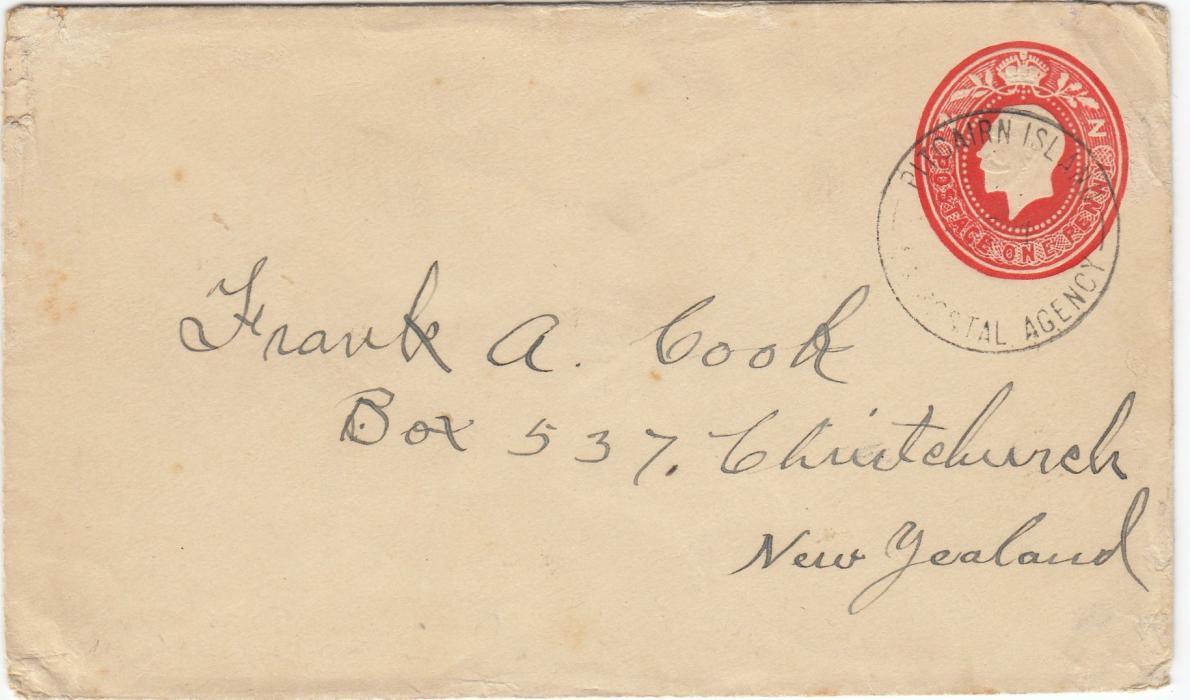 POSTAGE ONE PENNY
PITCAIRN ISLAN
POSTAL AGENCY
Frank A. Cook
Box 537. Christchurch
New Zealand